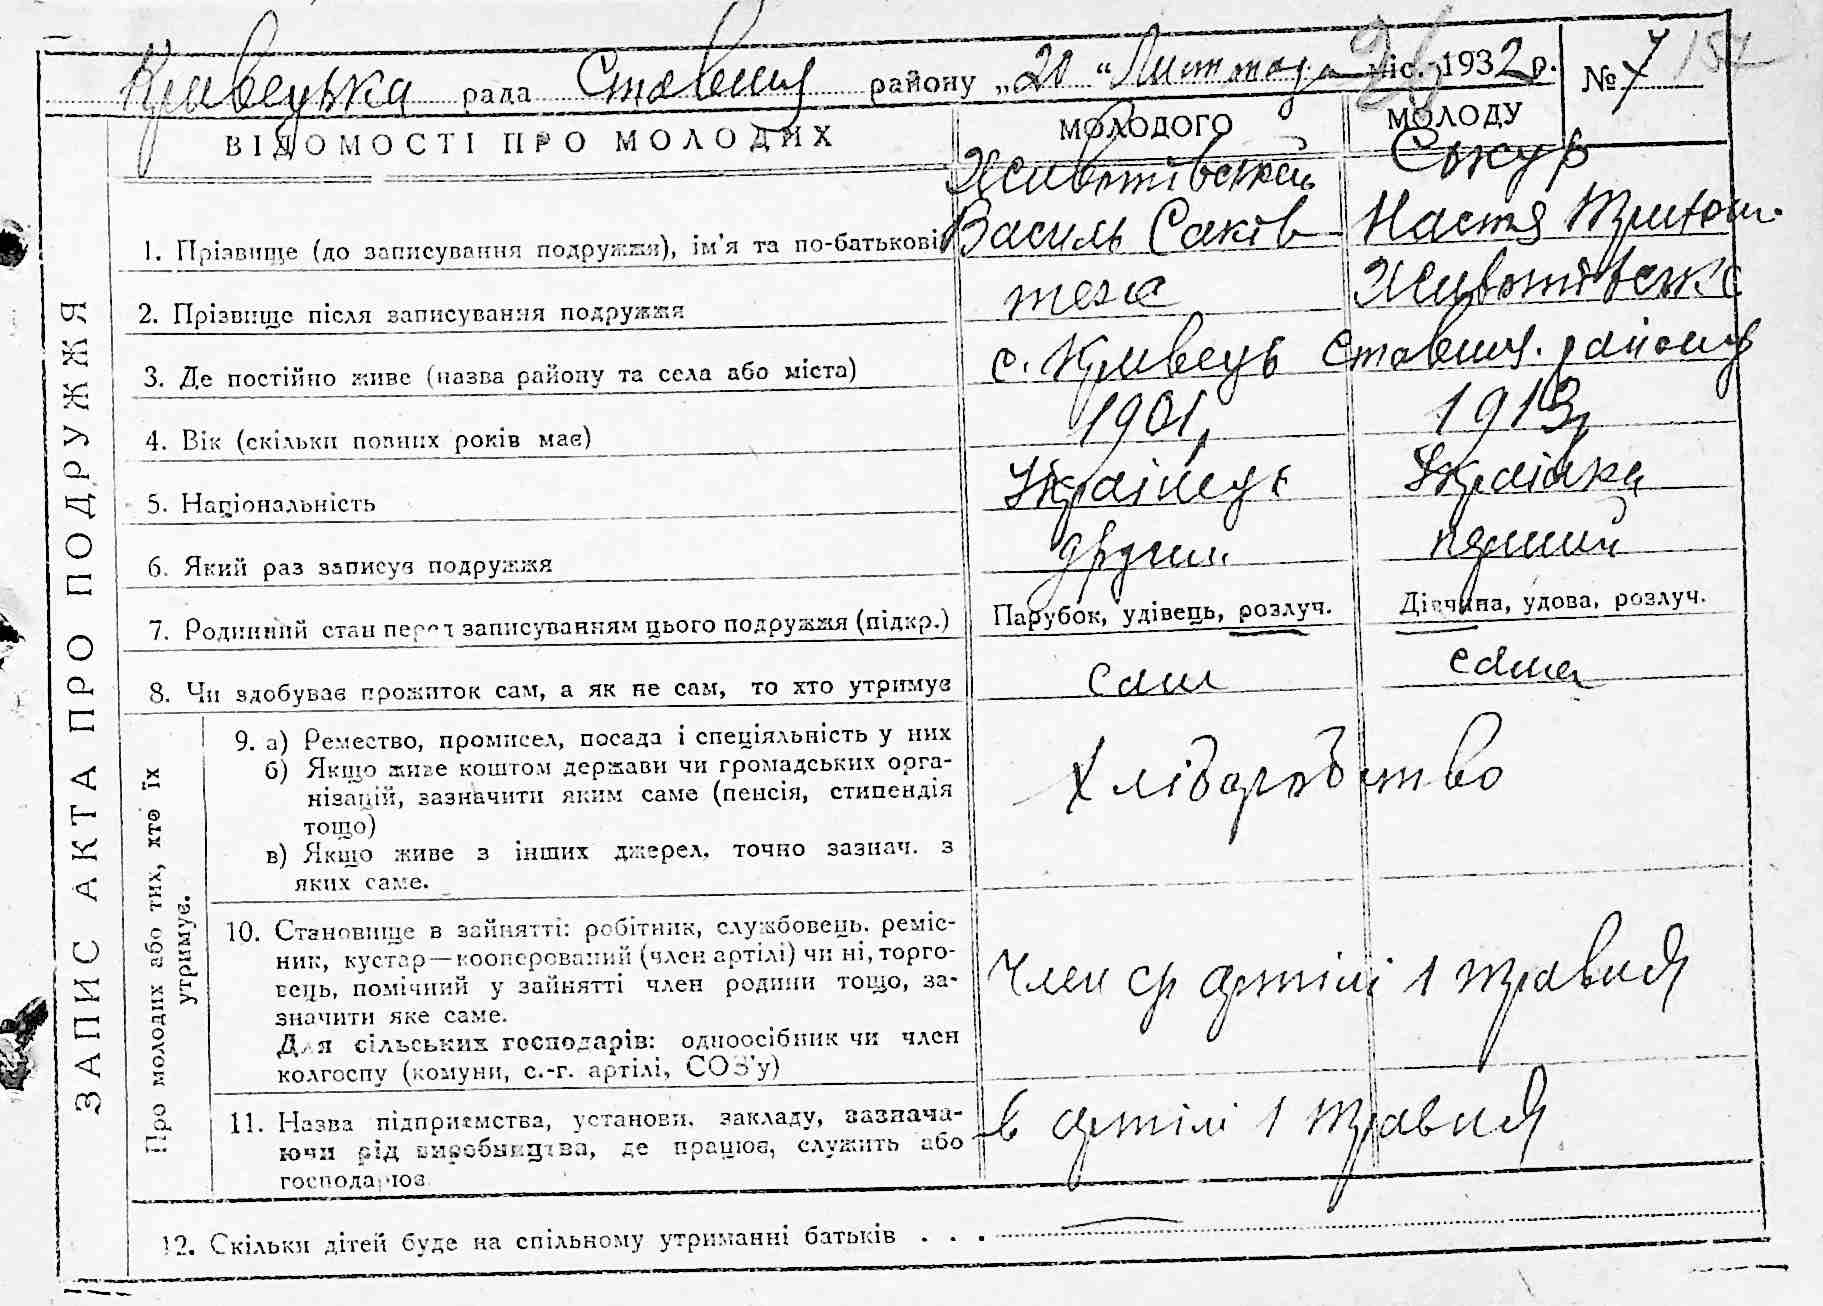 Кривецька рада Ставищ району „20 “ Листопада міс. 1932 р. № 7 154
26
ВІДОМОСТІ ПРО МОЛОДИХ МОЛОДОГО МОЛОДУ
Животівський Сокур
1. Прізвище (до записування подружжя), ім'я та по-батькові Василь Саків Настя
2. Прізвище після записування подружжя теж Животівська
3. Де постійно живе (назва району та села або міста) с. Кривець Ставищ. району
4. Вік (скільки повних років має) 1901 1913
5. Національність Українець Українка
6. Який раз записує подружжя другий перший
7. Родинний стан перед записуванням цього подружжя (підкр.) Парубок, удівець, розлуч. Дівчина, удова, розлуч.
8. Чи здобуває прожиток сам, а як не сам, то хто утримує сам сама
ЗАПИС АКТА ПРО ПОДРУЖЖЯ
Про молодих або тих, хто їх
утримує.
9. а) Ремество, промисел, посада і спеціяльність у них
б) Якщо живе коштом держави чи громадських орга-
нізацій, зазначити яким саме (пенсія, стипендія
тощо)
в) Якщо живе з інших джерел, точно зазнач. з
яких саме.
Хліборобство
10. Становище в зайнятті: робітник, службовець, реміс-
ник, кустар—кооперований (член артілі) чи ні, торго-
вець, помічний у зайнятті член родини тощо, за-
значити яке саме.
Для сільських господарів: одноосібник чи член
колгоспу (комуни, с.-г. артілі, СОЗ'у)
Член ср артілі 1 травня
11. Назва підприємства, установи, закладу, зазнача-
ючи рід виробництва, де працює, служить або
господарює
в артілі 1 травня
12. Скільки дітей буде на спільному утриманні батьків . . . —